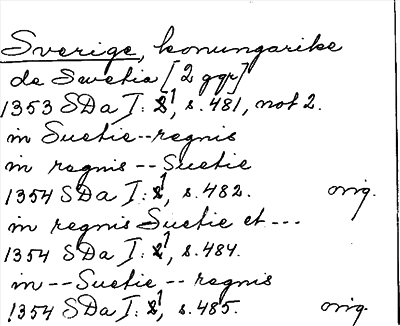 Sverige, konungarike
de Swetia [2 ggr]
1353 SDa I: 1, s. 481, not 2.
in Suetie--regnis
in regnis -- Suetie
1354 SDa I: 1, s. 482. orig.
in regnis Suetie et ---
1354 SDa I: 1, s. 484.
in -- Suetie -- regnis
1354 SDa I: 1, s. 485. orig.